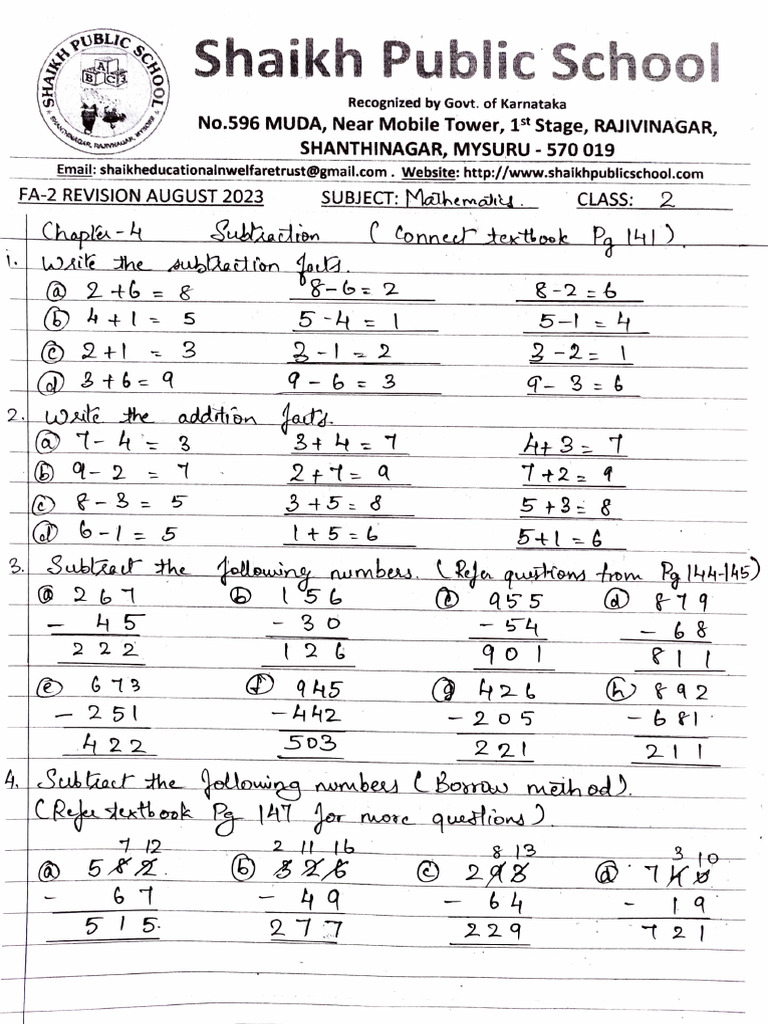 SHAIKH PUBLIC SCHOOL
A
B C 3
SHANTHINAGAR, RAJIVINAGAR, MYSORE
Shaikh Public School
Recognized by Govt. of Karnataka
No.596 MUDA, Near Mobile Tower, 1st Stage, RAJIVINAGAR,
SHANTHINAGAR, MYSURU - 570 019
Email: shaikheducationalnwelfaretrust@gmail.com . Website: http://www.shaikhpublicschool.com
FA-2 REVISION AUGUST 2023 SUBJECT: Mathematics. CLASS: 2
Chapter-4 Subtraction (Connect textbook Pg 141).
1. Write the subtraction facts.
ⓐ 2+6 = 8 8-6 = 2 8-2 = 6
ⓑ 4+1 = 5 5-4 = 1 5-1 = 4
ⓒ 2+1 = 3 3-1 = 2 3-2 = 1
ⓓ 3+6 = 9 9-6 = 3 9-3 = 6
2. Write the addition facts.
ⓐ 7-4 = 3 3+4 = 7 4+3 = 7
ⓑ 9-2 = 7 2+7 = 9 7+2 = 9
ⓒ 8-3 = 5 3+5 = 8 5+3 = 8
ⓓ 6-1 = 5 1+5 = 6 5+1 = 6
3. Subtract the following numbers. (Refer questions from Pg 144-145)
ⓐ 267 ⓑ 156 ⓒ 955 ⓓ 879
- 45 - 30 - 54 - 68
222 126 901 811
ⓔ 673 ⓕ 945 ⓖ 426 ⓗ 892
- 251 - 442 - 205 - 681
422 503 221 211
4. Subtract the following numbers (Borrow method).
(Refer textbook Pg 147 for more questions).
7 12 2 11 16 8 13 3 10
ⓐ 582 ⓑ 326 ⓒ 293 ⓓ 740
- 67 - 49 - 64 - 19
515 277 229 721